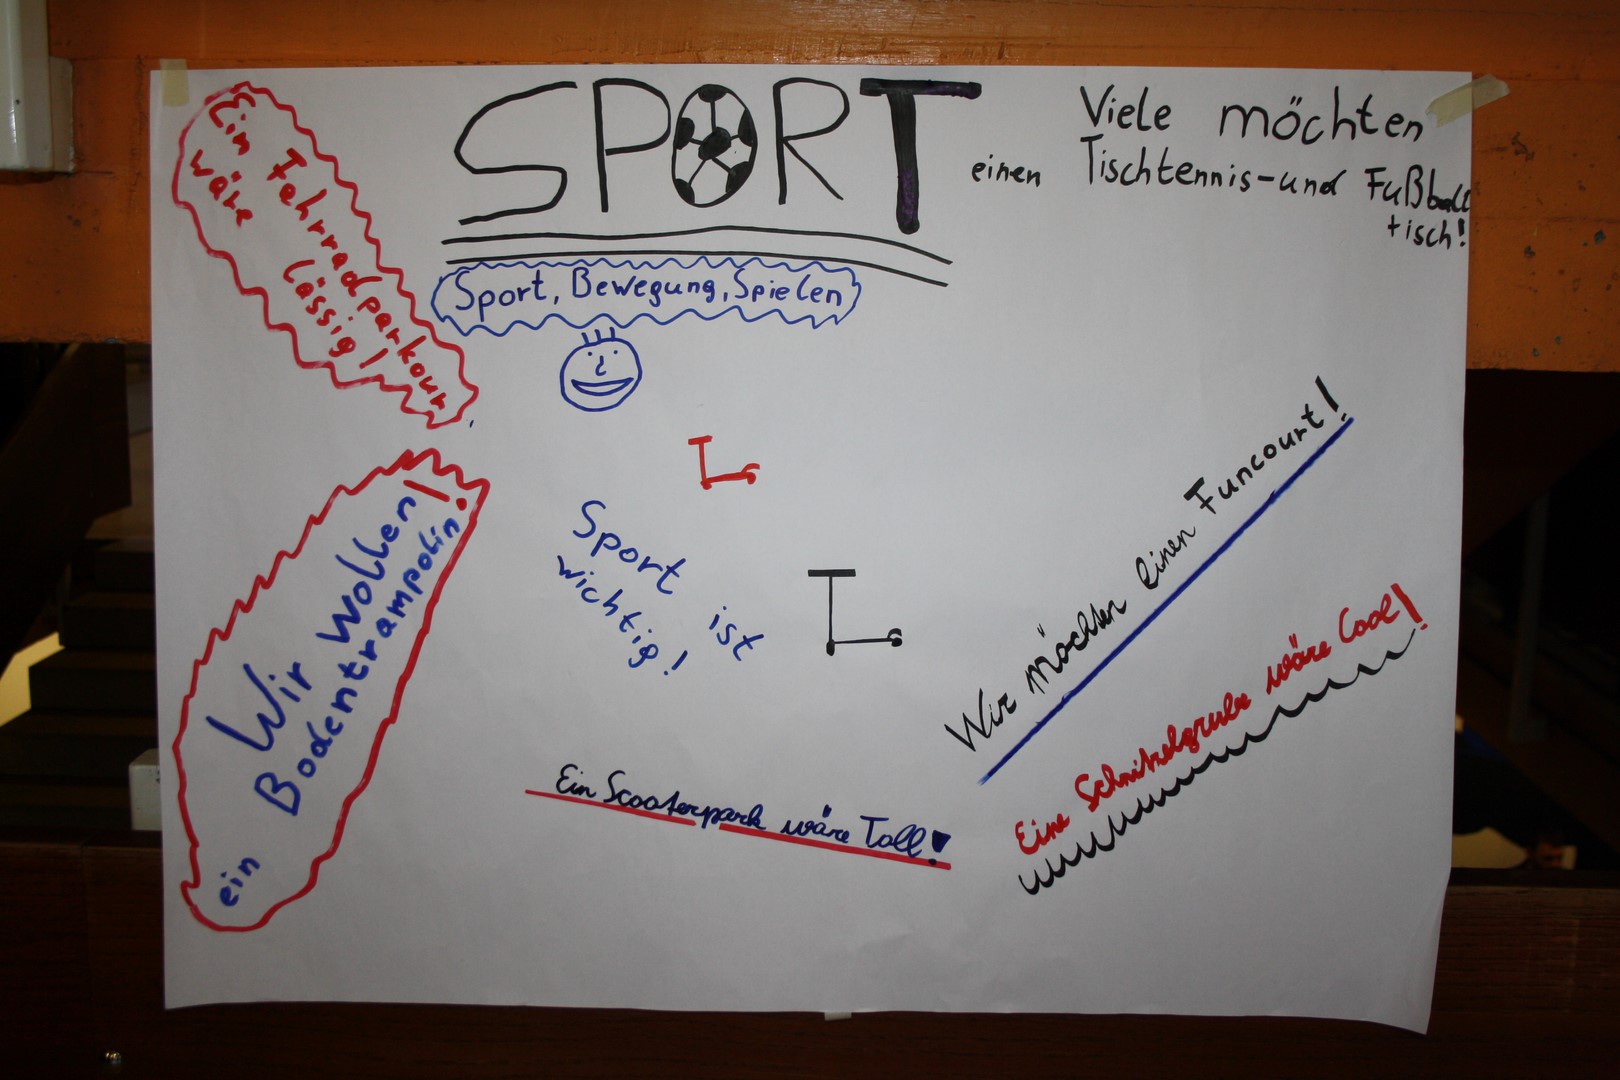 SPORT
Viele möchten
einen Tischtennis-und Fußball
tisch!
Sport, Bewegung, Spielen
Ein Fahrradparkour
wäre lässig!
Wir wollen!
ein Bodentrampolin
Sport ist
wichtig!
Wir möchten einen Funcourt!
Ein Scooterpark wäre Toll!
Eine Schnitzelgrube wäre Cool!